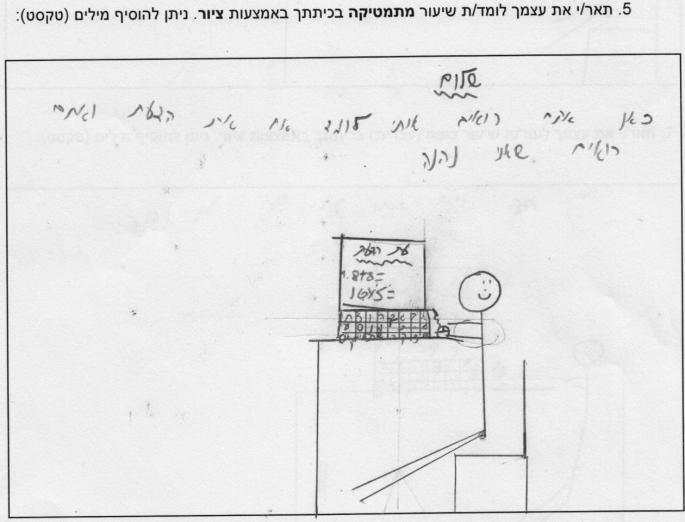 5. תאר/י את עצמך לומד/ת שיעור מתמטיקה בכיתתך באמצעות ציור. ניתן להוסיף מילים (טקסט):
שלום
כאן אתם רואים אותי לומד את עת הדעת ואתם
רואים שאני נהנה
עת הדעת